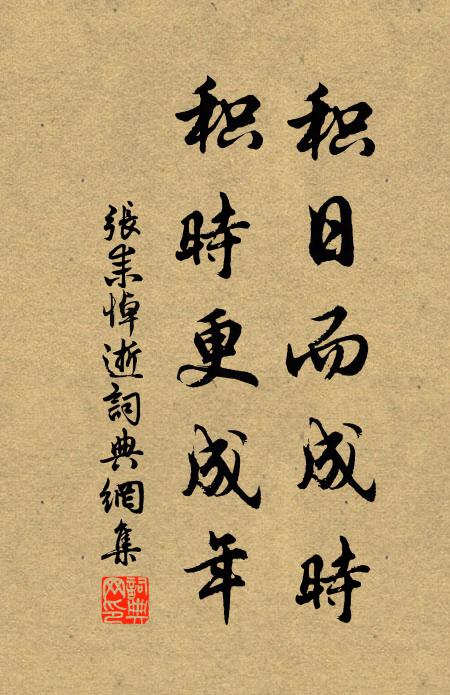 积日而成時
积時更成年
張耒悼逝詞典網集
詞典网印